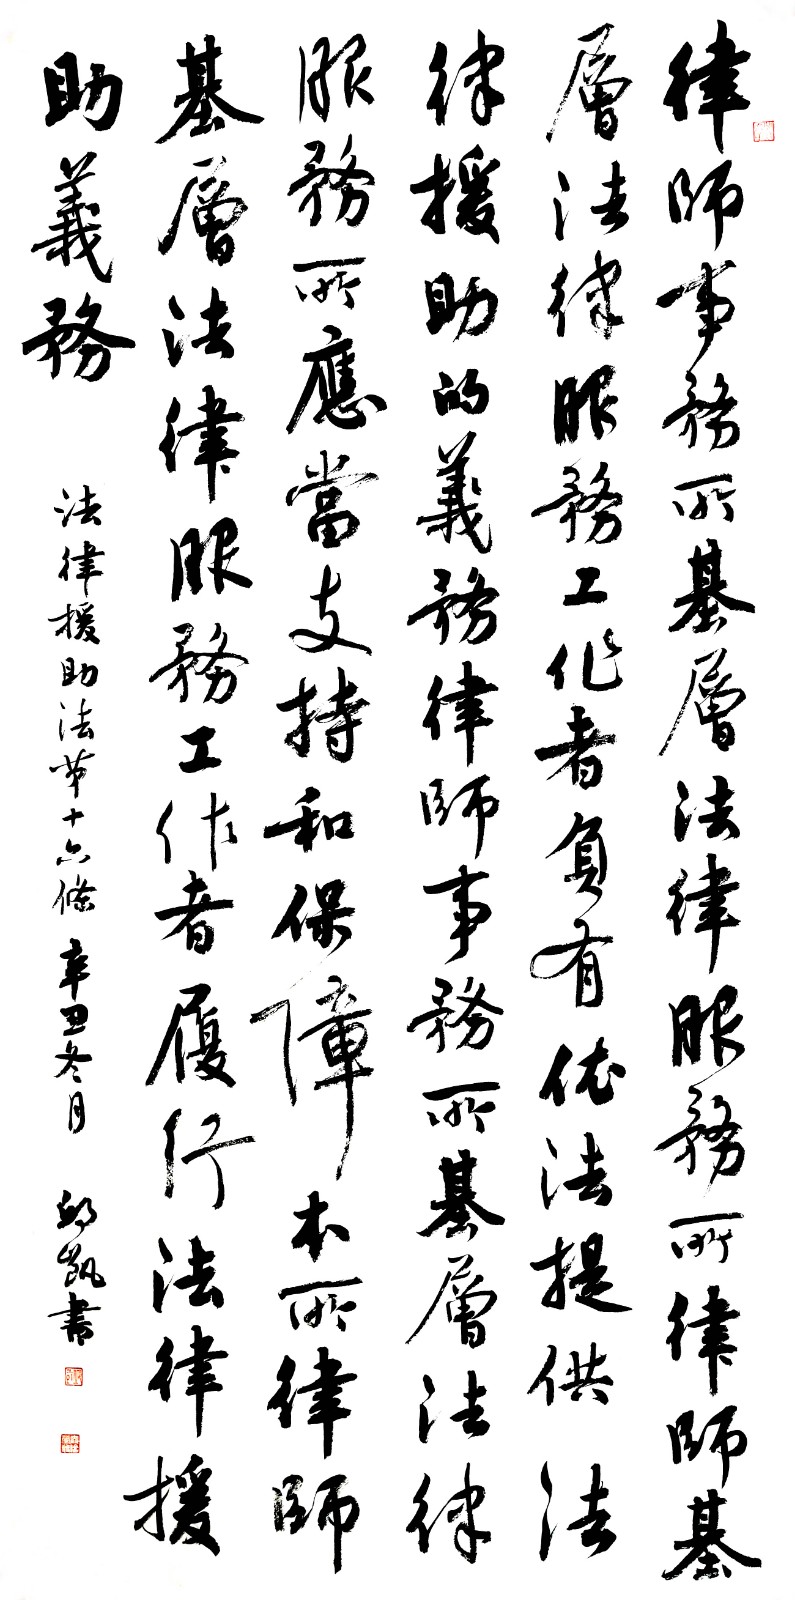 律師事務所基層法律服務所律師基
層法律服務工作者負有依法提供法
律援助的義務律師事務所基層法律
服務所應當支持和保障本所律師
基層法律服務工作者履行法律援
助義務
法律援助法第十六條 辛丑冬月 邱凱書